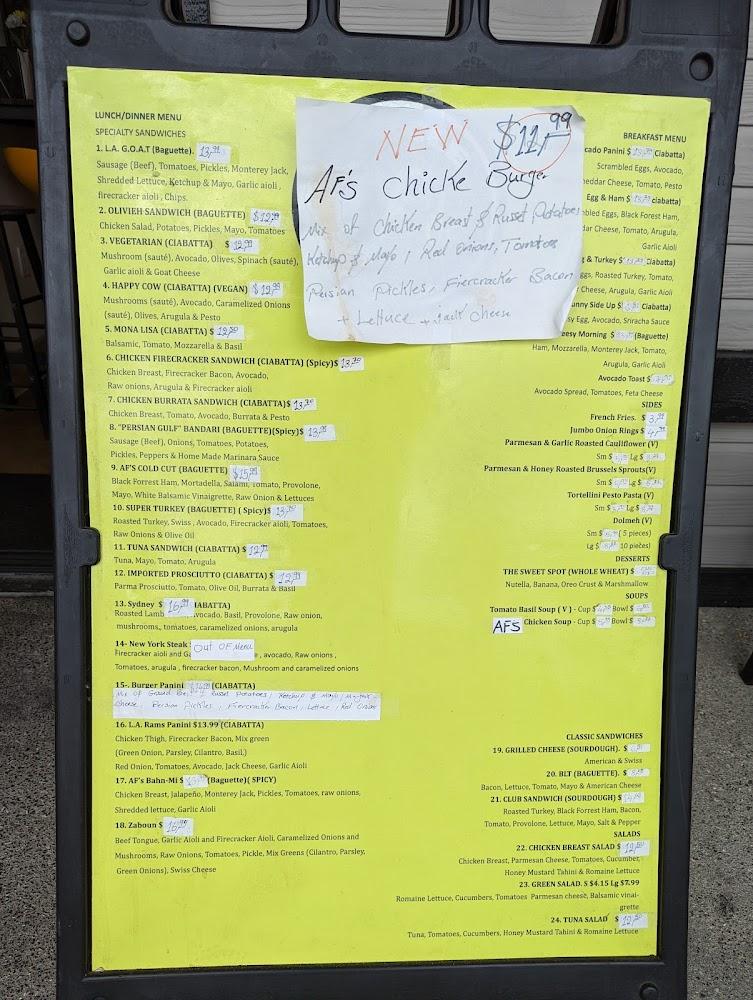 LUNCH/DINNER MENU
SPECIALTY SANDWICHES
1. L.A. G.O.A.T (Baguette).
Sausage (Beef), Tomatoes, Pickles, Monterey Jack,
Shredded Lettuce, Ketchup & Mayo, Garlic aioli,
firecracker aioli, Chips.
2. OLIVIEH SANDWICH (BAGUETTE)
Chicken Salad, Potatoes, Pickles, Mayo, Tomatoes
3. VEGETARIAN (CIABATTA) $
Mushroom (sauté), Avocado, Olives, Spinach (sauté),
Garlic aioli & Goat Cheese
4. HAPPY COW (CIABATTA) (VEGAN)
Mushrooms (sauté), Avocado, Caramelized Onions
(sauté), Olives, Arugula & Pesto
5. MONA LISA (CIABATTA) $
Balsamic, Tomato, Mozzarella & Basil
6. CHICKEN FIRECRACKER SANDWICH (CIABATTA) (Spicy)$
Chicken Breast, Firecracker Bacon, Avocado,
Raw onions, Arugula & Firecracker aioli
7. CHICKEN BURRATA SANDWICH (CIABATTA)$
Chicken Breast, Tomato, Avocado, Burrata & Pesto
8. "PERSIAN GULF" BANDARI (BAGUETTE)(Spicy)$
Sausage (Beef), Onions, Tomatoes, Potatoes,
Pickles, Peppers & Home Made Marinara Sauce
9. AF'S COLD CUT (BAGUETTE)
Black Forrest Ham, Mortadella, Salami, Tomato, Provolone,
Mayo, White Balsamic Vinaigrette, Raw Onion & Lettuces
10. SUPER TURKEY (BAGUETTE) ( Spicy)$
Roasted Turkey, Swiss , Avocado, Firecracker aioli, Tomatoes,
Raw Onions & Olive Oil
11. TUNA SANDWICH (CIABATTA) $
Tuna, Mayo, Tomato, Arugula
12. IMPORTED PROSCIUTTO (CIABATTA) $
Parma Prosciutto, Tomato, Olive Oil, Burrata & Basil
13. Sydney $ IABATTA)
Roasted Lamb vocado, Basil, Provolone, Raw onion,
mushrooms,, tomatoes, caramelized onions, arugula
14- New York Steak Out OF Menu
Firecracker aioli and Ga , avocado, Raw onions ,
Tomatoes, arugula , firecracker bacon, Mushroom and caramelized onions
15-. Burger Panini (CIABATTA)
Mix of Ground Russet Potatoes, Ketchup & Mayo,
Cheese, Persian Pickles, Firecracker Bacon, Lettuce, Red Onions
16. L.A. Rams Panini $13.99 (CIABATTA)
Chicken Thigh, Firecracker Bacon, Mix green
(Green Onion, Parsley, Cilantro, Basil,)
Red Onion, Tomatoes, Avocado, Jack Cheese, Garlic Aioli
17. AF's Bahn-Mi $ (Baguette)( SPICY)
Chicken Breast, Jalapeño, Monterey Jack, Pickles, Tomatoes, raw onions,
Shredded lettuce, Garlic Aioli
18. Zaboun $
Beef Tongue, Garlic Aioli and Firecracker Aioli, Caramelized Onions and
Mushrooms, Raw Onions, Tomatoes, Pickle, Mix Greens (Cilantro, Parsley,
Green Onions), Swiss Cheese
NEW $11.99
AF's Chicke Burger
Mix of Chicken Breast & Russet Potatoes
Ketchup & Mayo, Red Onions, Tomatoes
Persian Pickles, Fiercracker Bacon
+ Lettuce + jack cheese
BREAKFAST MENU
cado Panini $ Ciabatta)
Scrambled Eggs, Avocado,
heddar Cheese, Tomato, Pesto
Egg & Ham $ ciabatta)
bled Eggs, Black Forest Ham,
dar Cheese, Tomato, Arugula,
Garlic Aioli
g & Turkey $ iabatta)
ggs, Roasted Turkey, Tomato,
Cheese, Arugula, Garlic Aioli
unny Side Up $ Ciabatta)
sy Egg, Avocado, Sriracha Sauce
eesy Morning $ (Baguette)
Ham, Mozzarella, Monterey Jack, Tomato,
Arugula, Garlic Aioli
Avocado Toast $
Avocado Spread, Tomatoes, Feta Cheese
SIDES
French Fries. $
Jumbo Onion Rings $
Parmesan & Garlic Roasted Cauliflower (V)
Sm $ Lg $
Parmesan & Honey Roasted Brussels Sprouts(V)
Sm $ Lg $
Tortellini Pesto Pasta (V)
Sm $ Lg $
Dolmeh (V)
Sm $ ( 5 pieces)
Lg $ 10 pieces)
DESSERTS
THE SWEET SPOT (WHOLE WHEAT) $
Nutella, Banana, Oreo Crust & Marshmallow
SOUPS
Tomato Basil Soup ( V ) - Cup $ Bowl $
AFS Chicken Soup - Cup $ Bowl $
CLASSIC SANDWICHES
19. GRILLED CHEESE (SOURDOUGH). $
American & Swiss
20. BLT (BAGUETTE). $
Bacon, Lettuce, Tomato, Mayo & American Cheese
21. CLUB SANDWICH (SOURDOUGH) $
Roasted Turkey, Black Forrest Ham, Bacon,
Tomato, Provolone, Lettuce, Mayo, Salt & Pepper
SALADS
22. CHICKEN BREAST SALAD $
Chicken Breast, Parmesan Cheese, Tomatoes, Cucumber,
Honey Mustard Tahini & Romaine Lettuce
23. GREEN SALAD. S $4.15 Lg $7.99
Romaine Lettuce, Cucumbers, Tomatoes Parmesan cheese, Balsamic vinai-
grette
24. TUNA SALAD $
Tuna, Tomatoes, Cucumbers, Honey Mustard Tahini & Romaine Lettuce